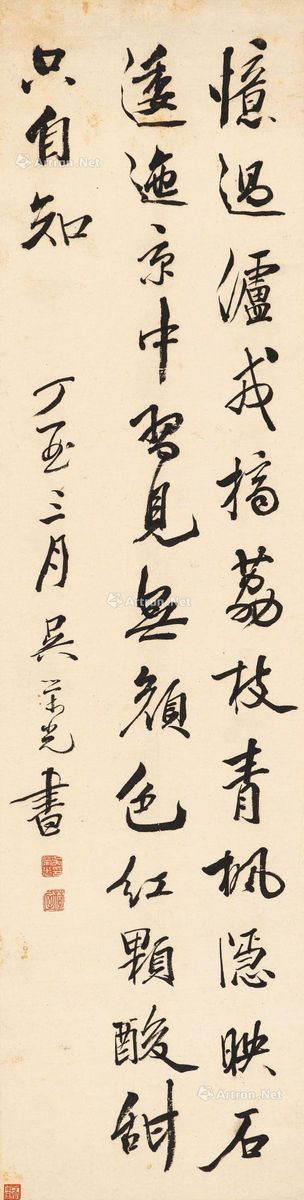 憶過瀘戎摘荔枝青楓隱映石
逶迤京中習見無顏色紅顆酸甜
只自知
丁酉三月吳榮光書
Artron.Net